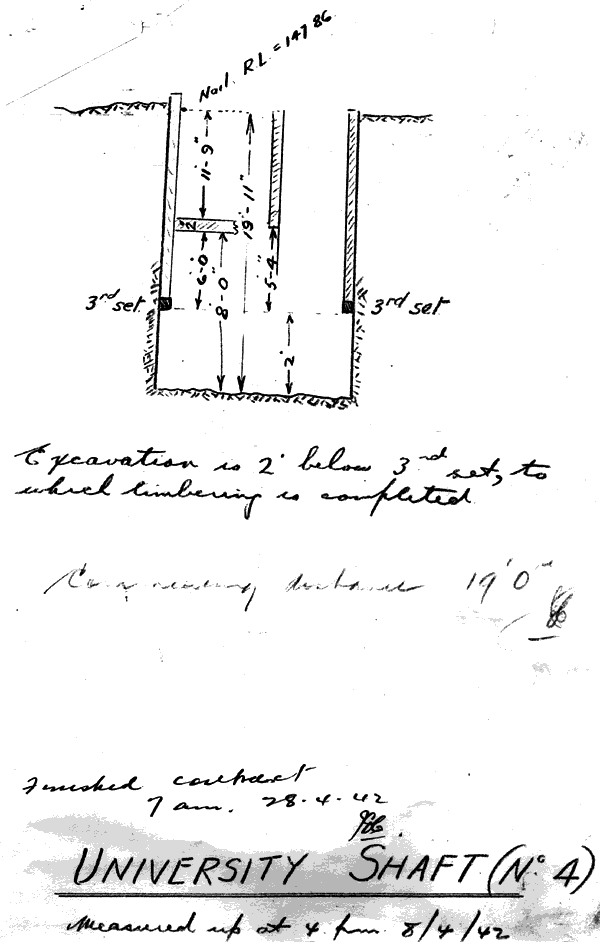 Nail R.L = 147.86
11'-9"
19'-11"
2"
6'-0"
8'-0"
5'-4"
3rd set
3rd set
2'
Excavation is 2' below 3rd set, to
which timbering is completed
distance 19'0"
Finished contract
7 am. 28.4.42
UNIVERSITY SHAFT (No 4)
Measured up at 4 pm 8/4/42